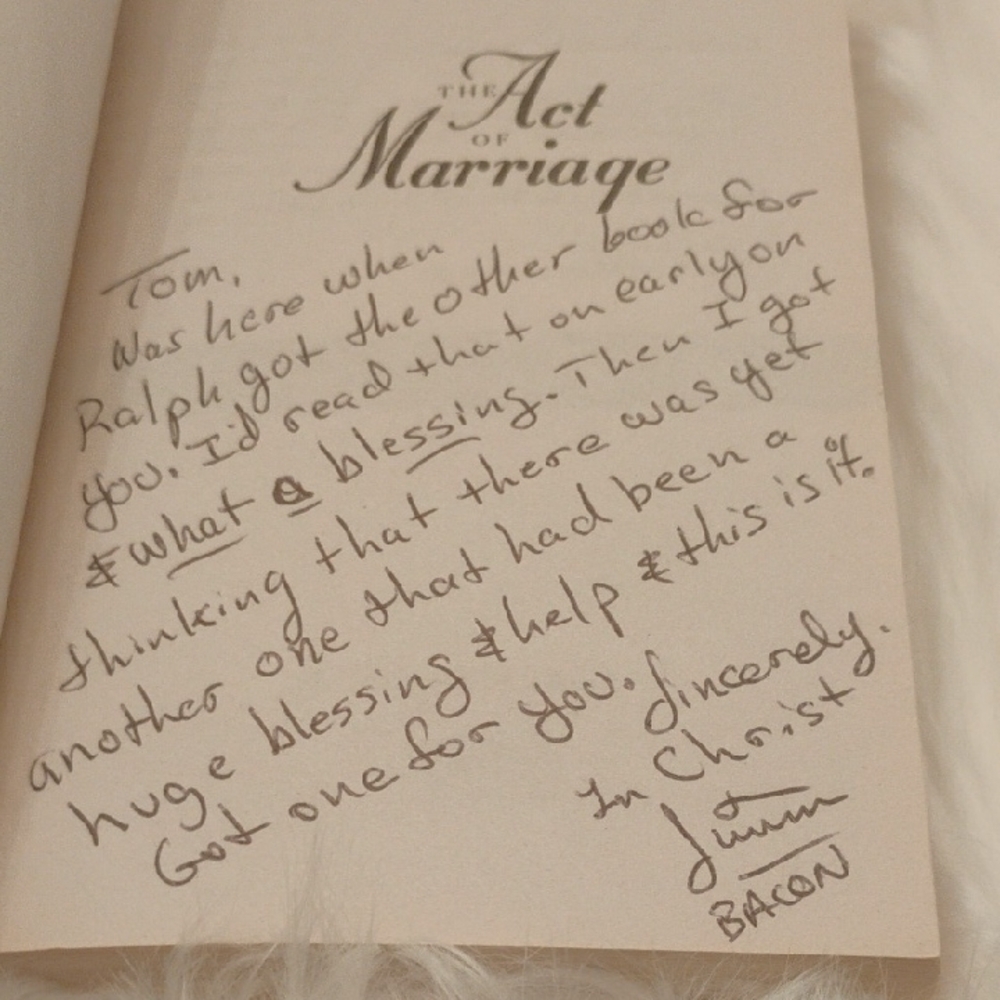 THE Act
OF
Marriage
Tom,
Was here when
Ralph got the other book for
you. I'd read that on early on
& what a blessing. Then I got
thinking that there was yet
another one that had been a
huge blessing & help & this is it.
Got one for you. Sincerely.
In Christ
BACON